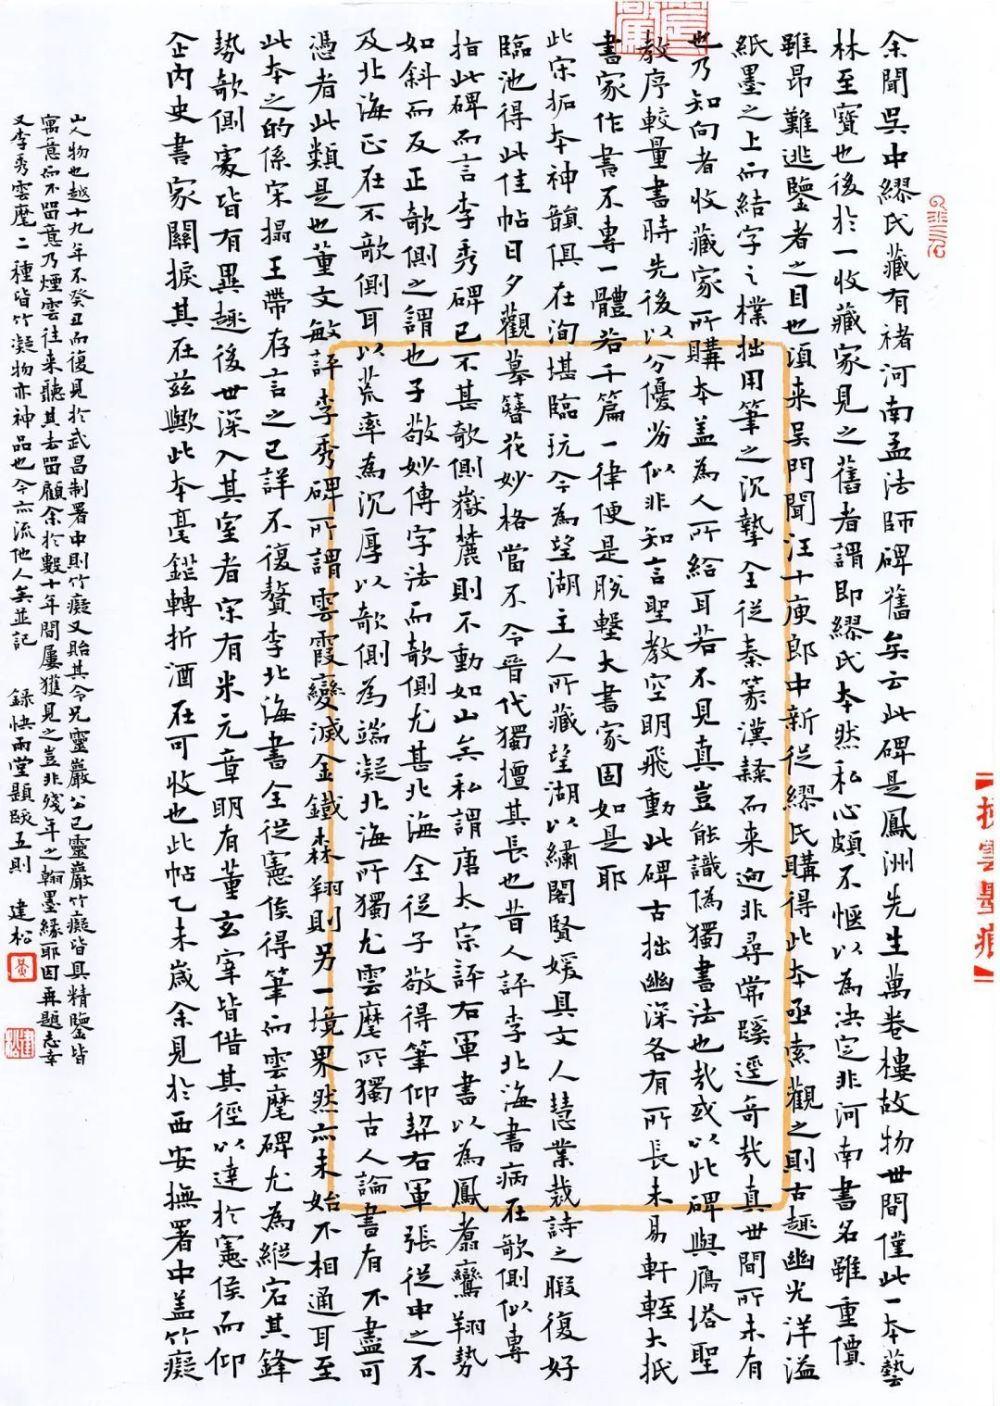 余聞吳中繆氏藏有褚河南孟法師碑舊矣云此碑是鳳洲先生萬卷樓故物世間僅此一本藝
林至寶也後於一收藏家見之舊者謂即繆氏本然私心頗不愜以為決定非河南書名雖重價
雖昂難逃鑒者之目也須来吳門聞汪十庚郎中新從繆氏購得此本亟索觀之則古趣幽光洋溢
紙墨之上而結字之樸拙用筆之沉摯全從秦篆漢隸而来迥非尋常蹊逕奇哉真世間所未有
也乃知向者收藏家所購本蓋為人所給耳若不見真豈能識偽獨書法也哉或以此碑與鴈塔聖
教序較量書時先後以分優劣似非知言聖教空明飛動此碑古拙幽深各有所長未易軒輊大抵
書家作書不專一體若千篇一律便是脫墼大書家固如是耶
此宋拓本神韻俱在洵堪臨玩今為望湖主人所藏望湖以繡閣賢媛具文人慧業裁詩之暇復好
臨池得此佳帖日夕觀摹簪花妙格當不令晉代獨擅其長也昔人評李北海書病在欹側似專
指此碑而言李秀碑已不甚欹側嶽麓則不動如山矣私謂唐太宗評右軍書以為鳳翥鸞翔勢
如斜而反正欹側之謂也子敬妙傳字法而欹側尤甚北海全從子敬得筆仰挈右軍張從申之不
及北海正在不欹側耳以荒率為沉厚以欹側為端凝北海所獨尤雲麾所獨古人論書有不盡可
憑者此類是也董文敏評李秀碑所謂雲霞變滅金鐵森翔則另一境界然亦未始不相通耳至
此本之的係宋搨王帶存言之已詳不復贅李北海書全從憲侯得筆而雲麾碑尤為縱宕其鋒
勢欹側處皆有異趣後世深入其室者宋有米元章明有董玄宰皆借其徑以達於憲侯而仰
企內史書家關捩其在茲歟此本毫鋩轉折酒在可收也此帖乙未歲余見於西安撫署中蓋竹癡
山人物也越十九年不癸丑而復見於武昌制署中則竹癡又貽其令兄靈巖公已靈巖竹癡皆具精鑒皆
寓意而不留意乃煙雲往来聽其去留顧余於數十年間屢獲見之豈非殘年之翰墨緣耶因再題志幸
又李秀雲麾二種皆竹凝物亦神品也今亦流他人矣並記
録快雨堂題跋五則
建松